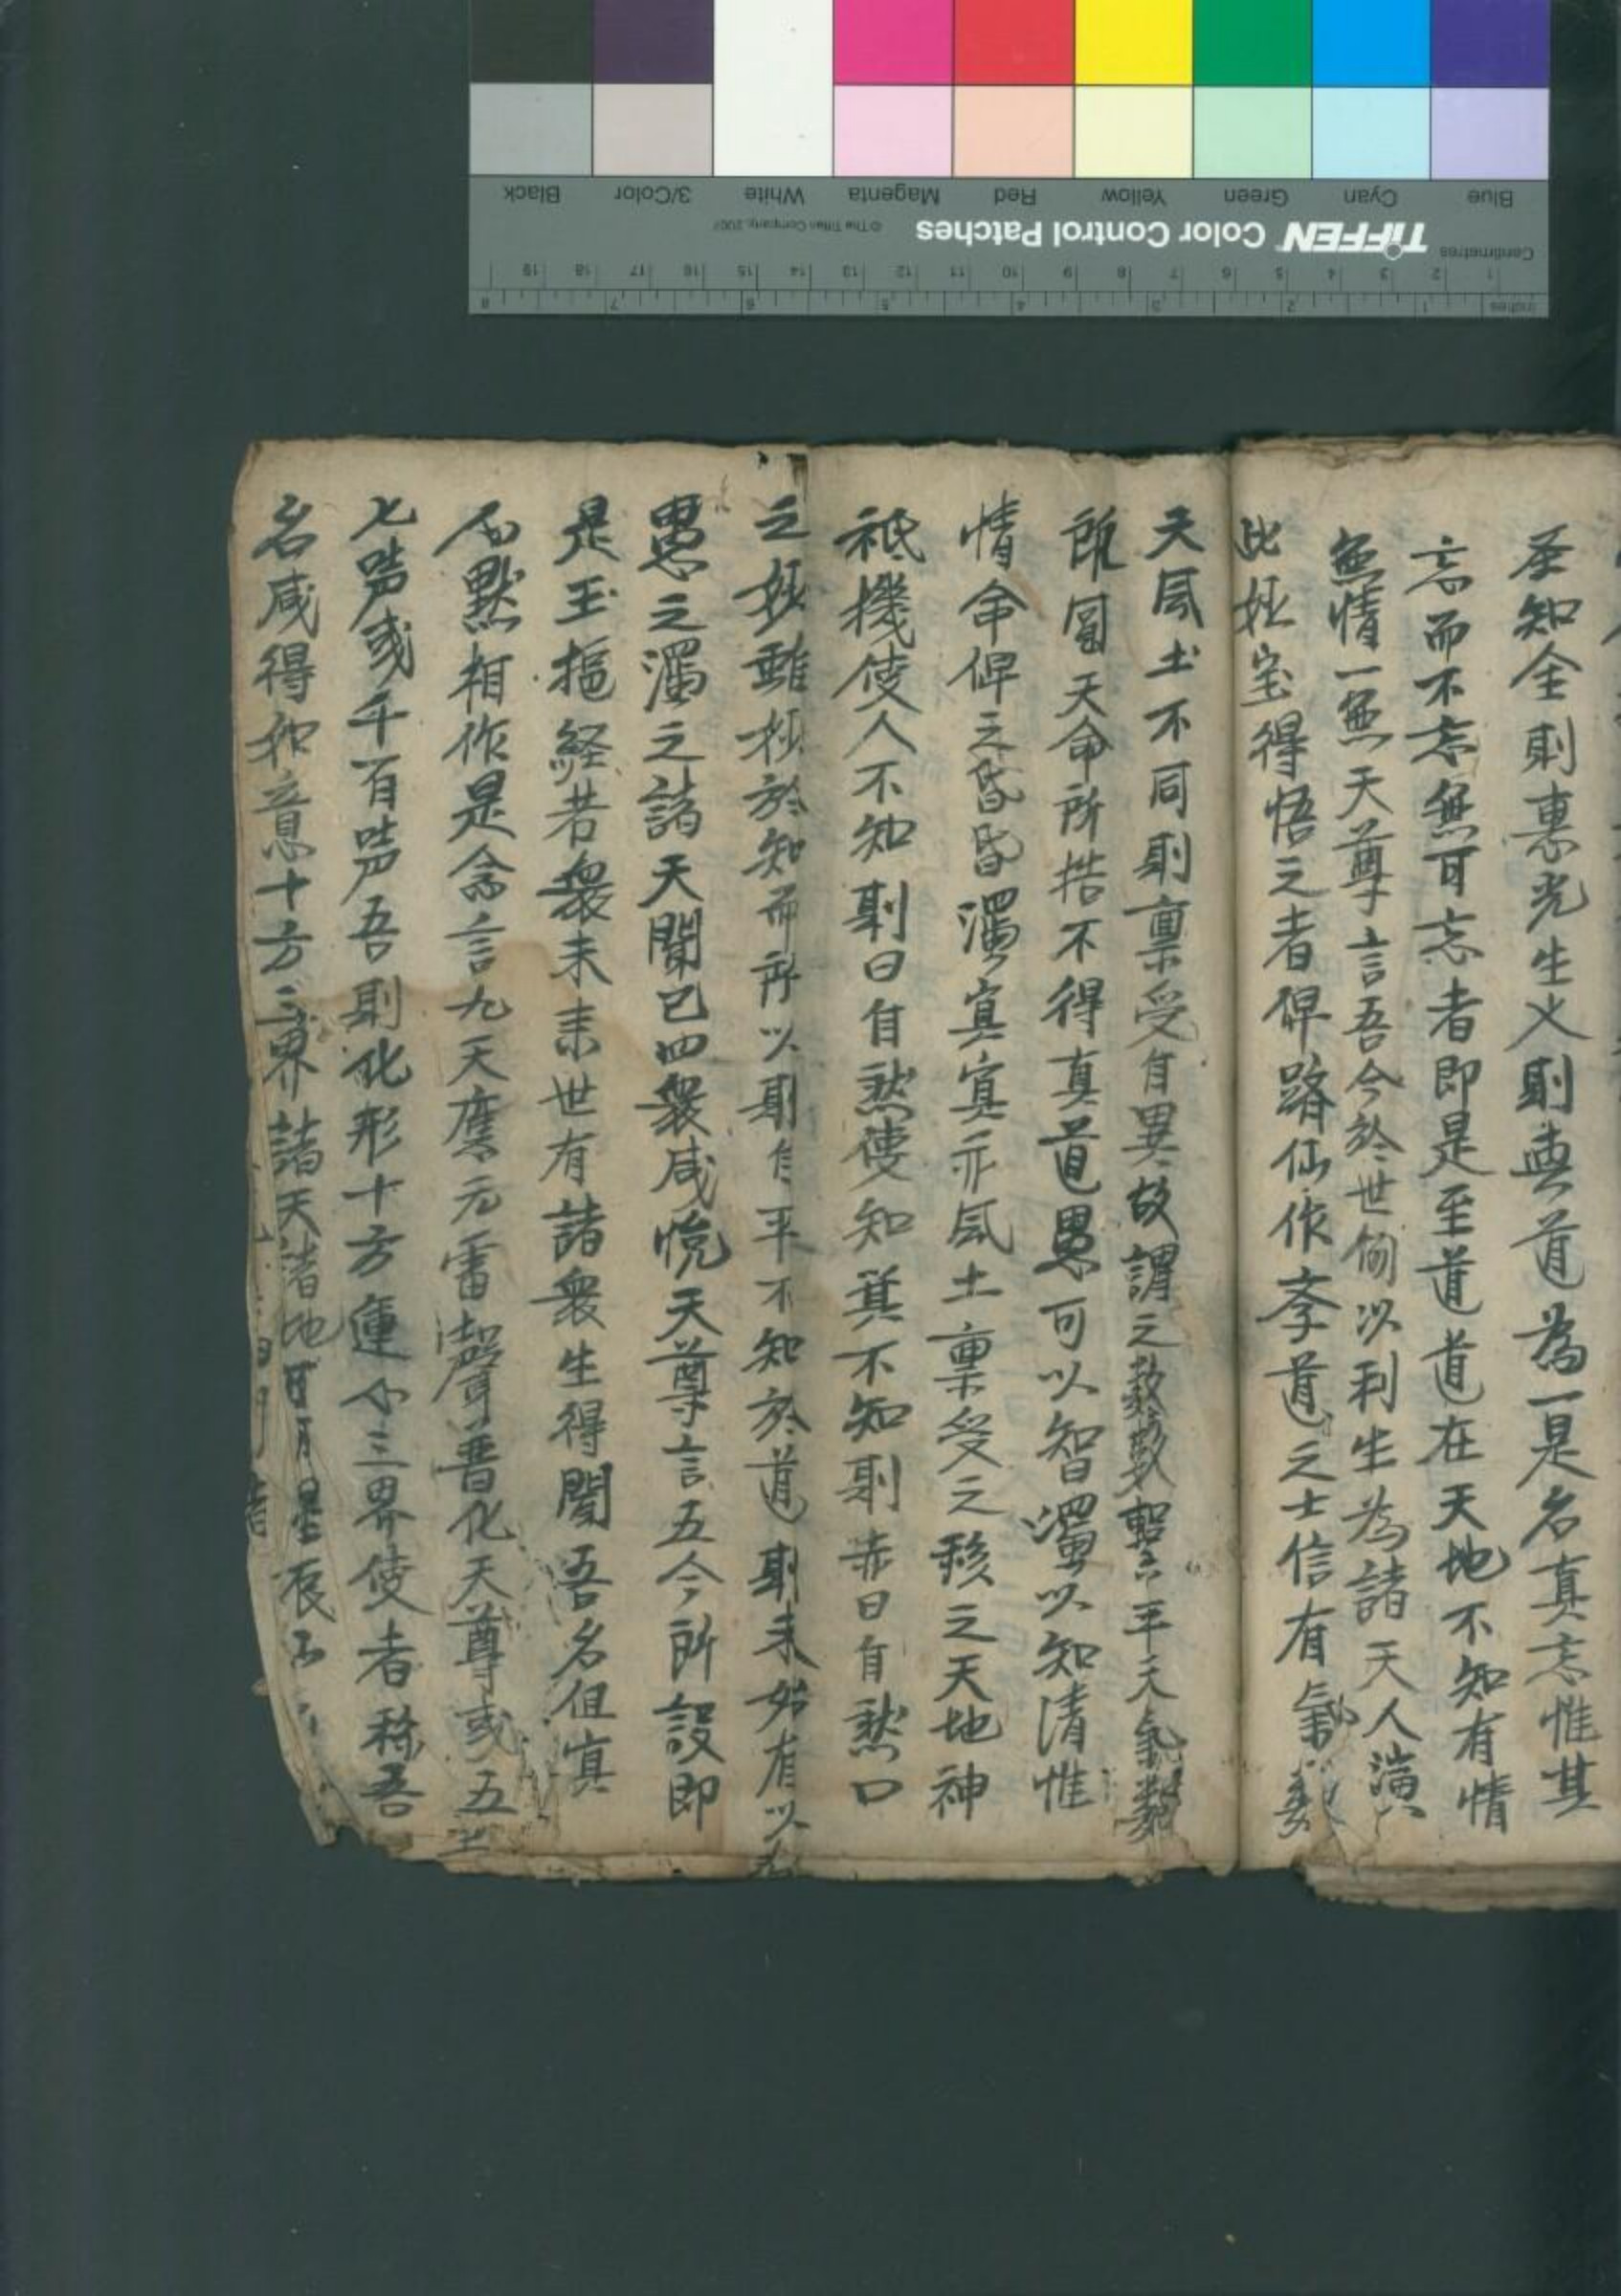 Blue Cyan Green Yellow Red Magenta White 3/Color Black
TIFFEN Color Control Patches © The Tiffen Company, 2007
Centimetres 1 2 3 4 5 6 7 8 9 10 11 12 13 14 15 16 17 18 19
Inches 1 2 3 4 5 6 7 8
圣知全則惠光生火則與道為一是名真忘惟其
忘而不忘無可忘者即是至道道在天地不知有情
無情一無天尊言吾今於世何以利生為諸天人演
此妙宝得悟之者俾躋仙作斈道之士信有氣数
天風土不同則稟受自異故謂之数繫乎天氣數
所囿天命所梏不得真道愚可以智濁以知清惟
情命俾之昏昏濁冥冥亦風土稟受之移之天地神
祇機使人不知則曰自然使知其不知則亦曰自然口
之妙雖妙於知而所以則自乎不知於道則未始有以
愚之濁之諸天聞已四衆咸悅天尊言五今所說即
是玉樞経若衆未来世有諸衆生得聞吾名但冥
心默相作是念言九天應元雷聲普化天尊或五
七声或千百声吾則化形十方運心三界使者称吾
名咸得如意十方三界諸天諸地日月星辰